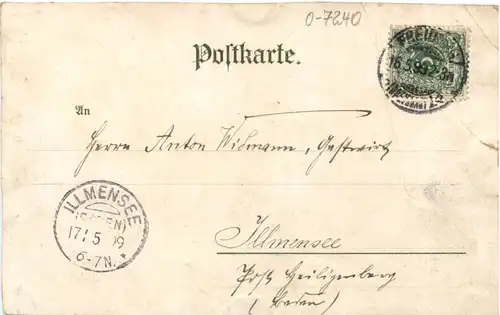 0-7240
Postkarte.
FREIBURG
16.5.99.2-3N
An
Herrn Anton Widmann, Gastwirt
ILLMENSEE
(BADEN)
17. 5 99
6-7N.
in
Illmensee
Post Heiligenberg
(Baden)